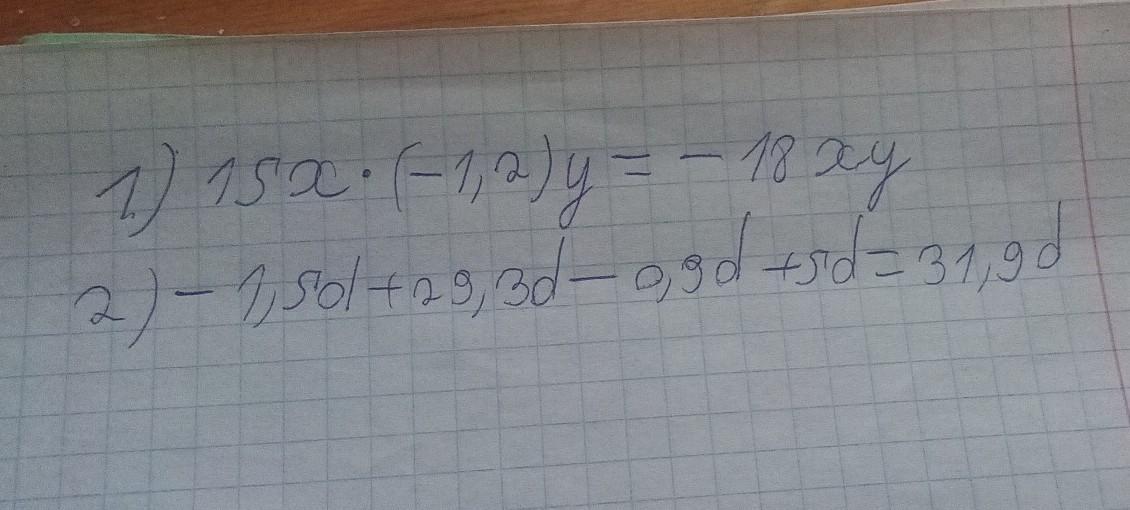 1) 15x·(-1,2)y = - 18xy
2) - 1,5d + 29,3d - 0,9d + 5d = 31,9d